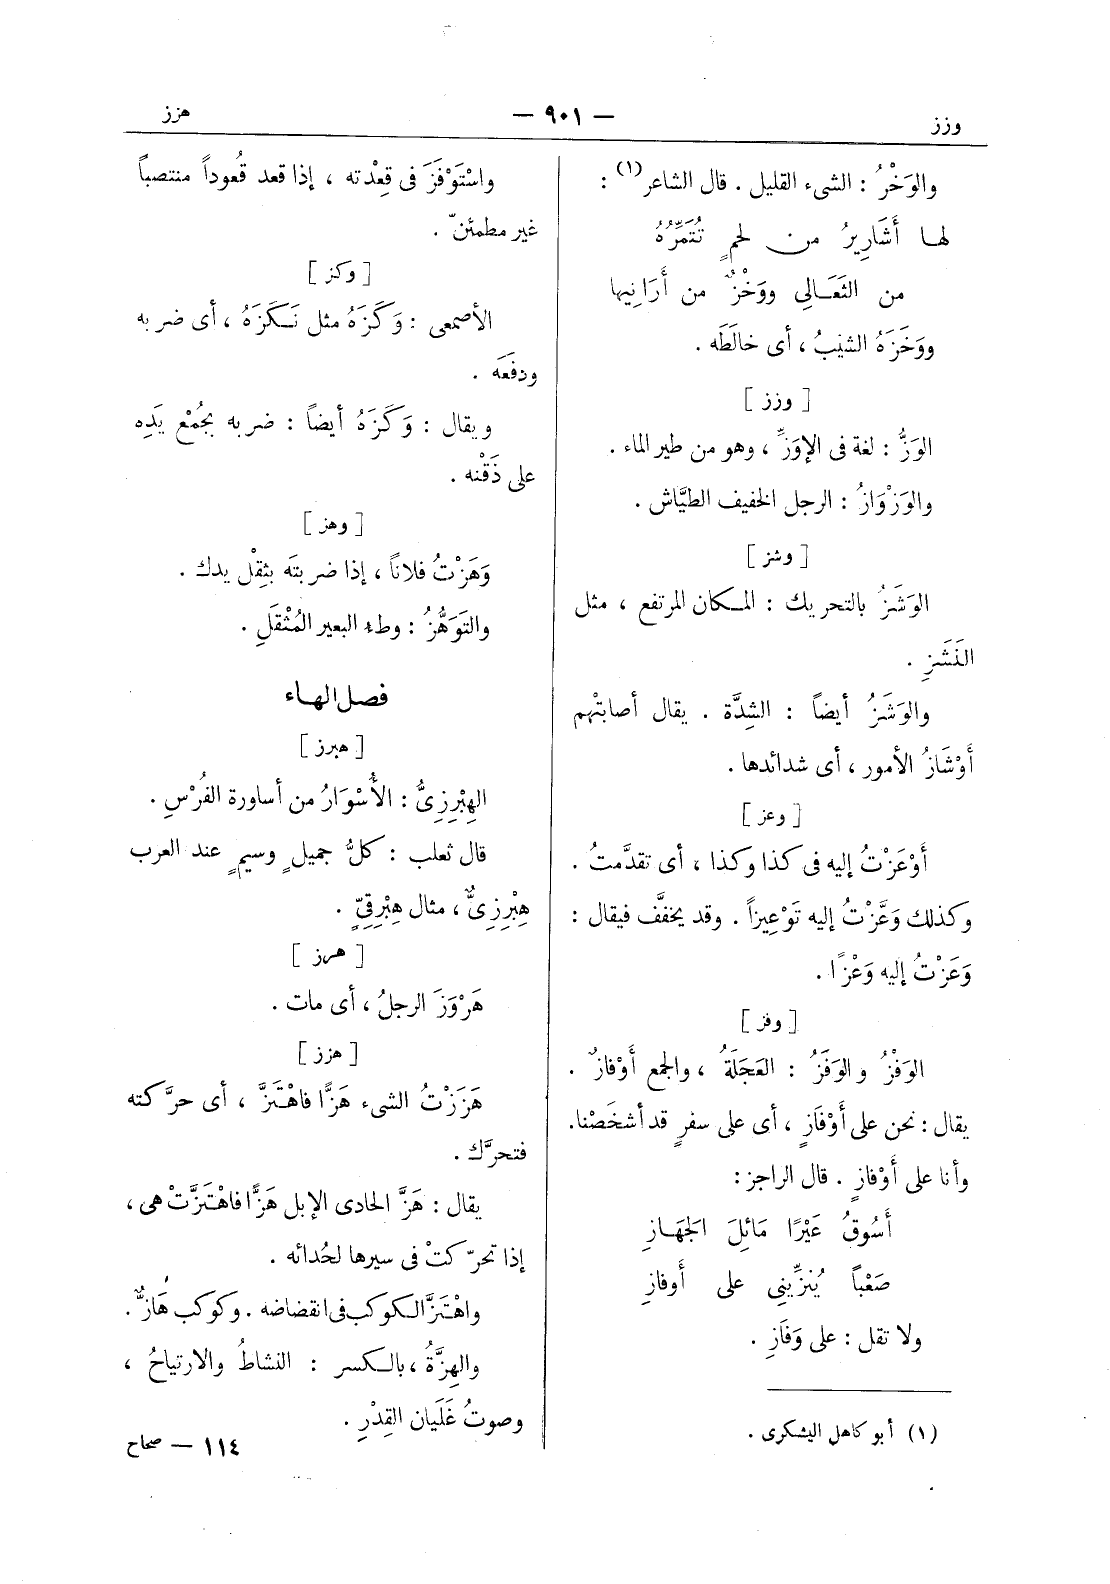 وزز
— ٩٠١ —
هزز
والوَخْزُ : الشىء القليل . قال الشاعر (١) :
لهـا أَشَارِيرُ من لحمٍ تُتَمِّرُهُ
من الثَعَـالِى ووَخْزٌ من أَرَانِيها
ووَخَزَهُ الشيبُ ، أى خالَطَه .
[ وزز ]
الوَزُّ : لغة فى الإوَزِّ ، وهو من طير الماء .
والوَزْوَازُ : الرجل الخفيف الطيَّاش .
[ وشز ]
الوَشَزُ بالتحريك : المـكان المرتفع ، مثل
النَشَزِ .
والوَشَزُ أيضاً : الشِدَّة . يقال أصابتْهم
أَوْشَازُ الأمور ، أى شدائدها .
[ وعز ]
أَوْعَزْتُ إليه فى كذا وكذا ، أى تقدَّمتُ .
وكذلك وَعَّزْتُ إليه تَوْعِيزاً . وقد يخفَّف فيقال :
وَعَزْتُ إليه وَعْزًا .
[ وفز ]
الوَفْزُ والوَفَزُ : العَجَلَةُ ، والجمع أَوْفازٌ .
يقال : نحن على أَوْفَازٍ ، أى على سفرٍ قد أشخَصْنا.
وأنا على أَوْفازٍ . قال الراجز :
أَسُوقُ عَيْرًا مَائِلَ الجَهَـازِ
صَعْباً يُنزِّينِى على أَوفازِ
ولا تقل : على وَفَازِ .
(١) أبو كاهل اليشكرى .
واسْتَوْفَزَ فى قِعْدته ، إذا قعد قُعوداً منتصباً
غير مطمئنّ .
[ وكز ]
الأصمعى : وَكَزَهُ مثل نَـكَزَهُ ، أى ضربه
ودفَعَه .
ويقال : وَكَزَهُ أيضاً : ضربه بجُمْع يَدِه
على ذَقْنه .
[ وهز ]
وَهَزْتُ فلاناً ، إذا ضربتَه بثِقْل يدك .
والتوَهُّزُ : وطء البعير المُثْقَلِ .
فصل الهاء
[ هبرز ]
الهِبْرِزِىُّ : الأُسْوَارُ من أساورة الفُرْسِ .
قال ثعلب : كلُّ جميلٍ وسيمٍ عند العرب
هِبْرِزِىٌّ ، مثال هِبْرِقِيٍّ .
[ هرز ]
هَرْوَزَ الرجلُ ، أى مات .
[ هزز ]
هَزَزْتُ الشىء هَزًّا فاهْتَزَّ ، أى حرَّكته
فتحرَّك .
يقال : هَزَّ الحادى الإبل هَزًّا فاهْتَزَّتْ هى ،
إذا تحرّكتْ فى سيرها لحُدائه .
واهْتَزَّ الـكوكب فى انقضاضه . وكوكب هَازٌّ .
والهِزَّةُ ، بالـكسر : النشاطُ والارتياحُ ،
وصوتُ غَلَيان القِدْرِ .
١١٤ — صحاح